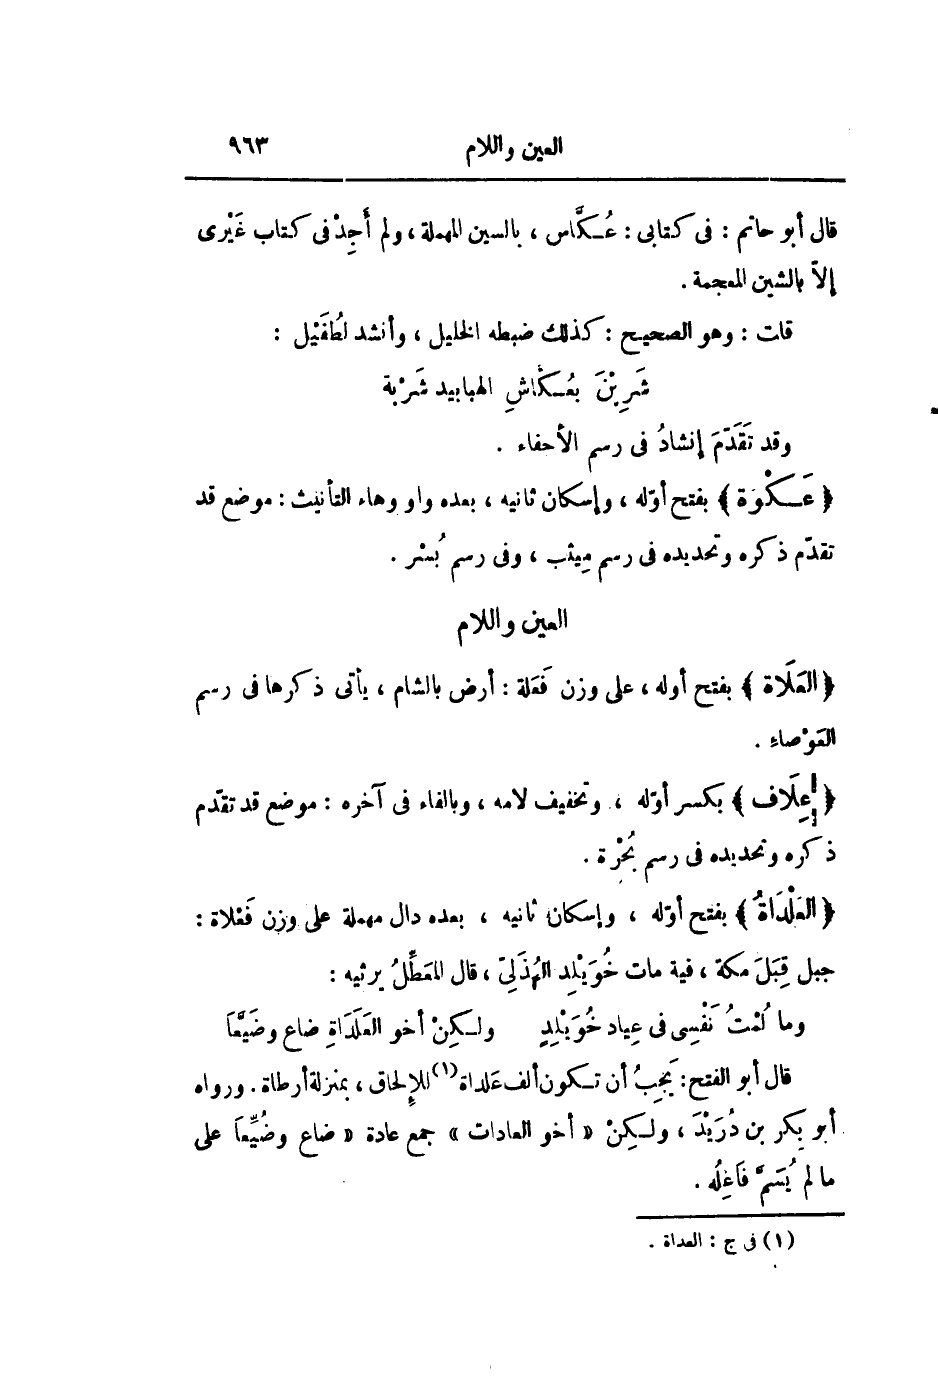 العين واللام ٩٦٣
قال أبو حاتم : فى كتابى : عُـكَّاس ، بالسين المهملة ، ولم أَجِدْ فى كتاب غَيْرى
إلاّ بالشين المعجمة .
قلت : وهو الصحيح : كذلك ضبطه الخليل ، وأنشد لطُفَيْل :
شَرِبْنَ بعُـكّاشِ الهبابيد شَرْبة
وقد تَقَدّمَ إنشادُ فى رسم الأحفاء .
﴿ عَـكْوَة ﴾ بفتح أوّله ، وإسكان ثانيه ، بعده واو وهاء التأنيث : موضع قد
تقدّم ذكره وتحديده فى رسم مِيثب ، وفى رسم بُسْر .
العين واللام
﴿ العَلَاة ﴾ بفتح أوله ، على وزن فَعَلة : أرض بالشام ، يأتى ذكرها فى رسم
العَوْصاءِ .
﴿ إعِلَاف ﴾ بكسر أوّله ، وتخفيف لامه ، وبالفاء فى آخره : موضع قد تقدّم
ذكره وتحديده فى رسم بُحْرة .
﴿ العَلْدَاةُ ﴾ بفتح أوّله ، وإسكان ثانيه ، بعده دال مهملة على وزن فَعْلاة :
جبل قِبَلَ مكة ، فية مات خُوَيْلِد الهُذَلِىّ ، قال المعَطِّلُ يرثيه :
وما لُمْتُ نَفْسِى فى عِياد خُوَيْلِدٍ ولـكِنْ أخو العَلَدَاةِ ضاع وضَيَّعاَ
قال أبو الفتح : يَجِبُ أن تـكون ألف عَلداة(١) للإِلحاق ، بمنزلة أرطاة . ورواه
أبو بكر بن دُرَيْدَ ، ولـكِنْ « أخو العادات » جمع عادة « ضاع وضُيِّعاَ على
ما لم يُسَمَّ فَاعِلُه .
(١) فى ج : العداة .